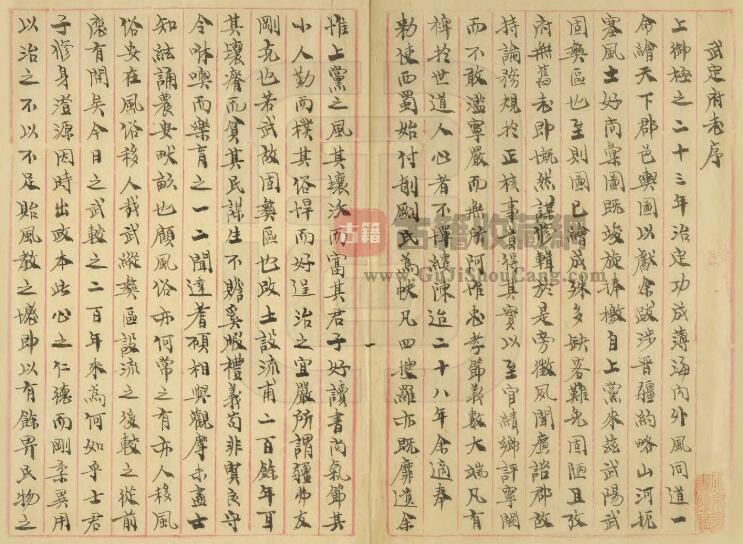 武定府志序
上御極之二十三年治定功成薄海內外風同道一
命繪天下郡邑輿圖以獻余跋涉晉疆約略山河扼
塞風土好尚彙圖既竣旋奉檄自上黨來茲武陽武
固彝區也至則圖已繪成殊多缺略難免固陋且攷
府無舊志即慨然謀輯於是旁徵風聞廣諮郡故
持論務規於正核事貴得其實以至官績鄉評寧闕
而不敢濫寧嚴而無所阿惟忠孝節義數大端凡有
裨於世道人心者不憚縷陳迨二十八年余適奉
勅使西蜀始付剞劂氏為帙凡四搜羅亦既靡遺余
惟上黨之風其壤沃而富其君子好讀書尚氣節其
小人勤而樸其俗悍而好逞治之宜嚴所謂疆弗友
剛克也若武故固彝區也改土設流甫二百餘年耳
其壤瘠而貧其民謀生不贍奚暇禮義苟非賢良守
令咻噢而樂育之一二聞達耆碩相與觀摩未盡士
知絃誦農安畎畝也顧風俗亦何常之有亦人移風
俗安在風俗移人哉武縱彝區設流之後較之從前
應有間矣今日之武較之二百年來為何如乎士君
子修身澄源因時出政本此心之仁德而剛柔異用
以治之不以不足貽風教之憾即以有餘畀民物之
古籍
古籍收藏网
www.GuJiShouCang.com